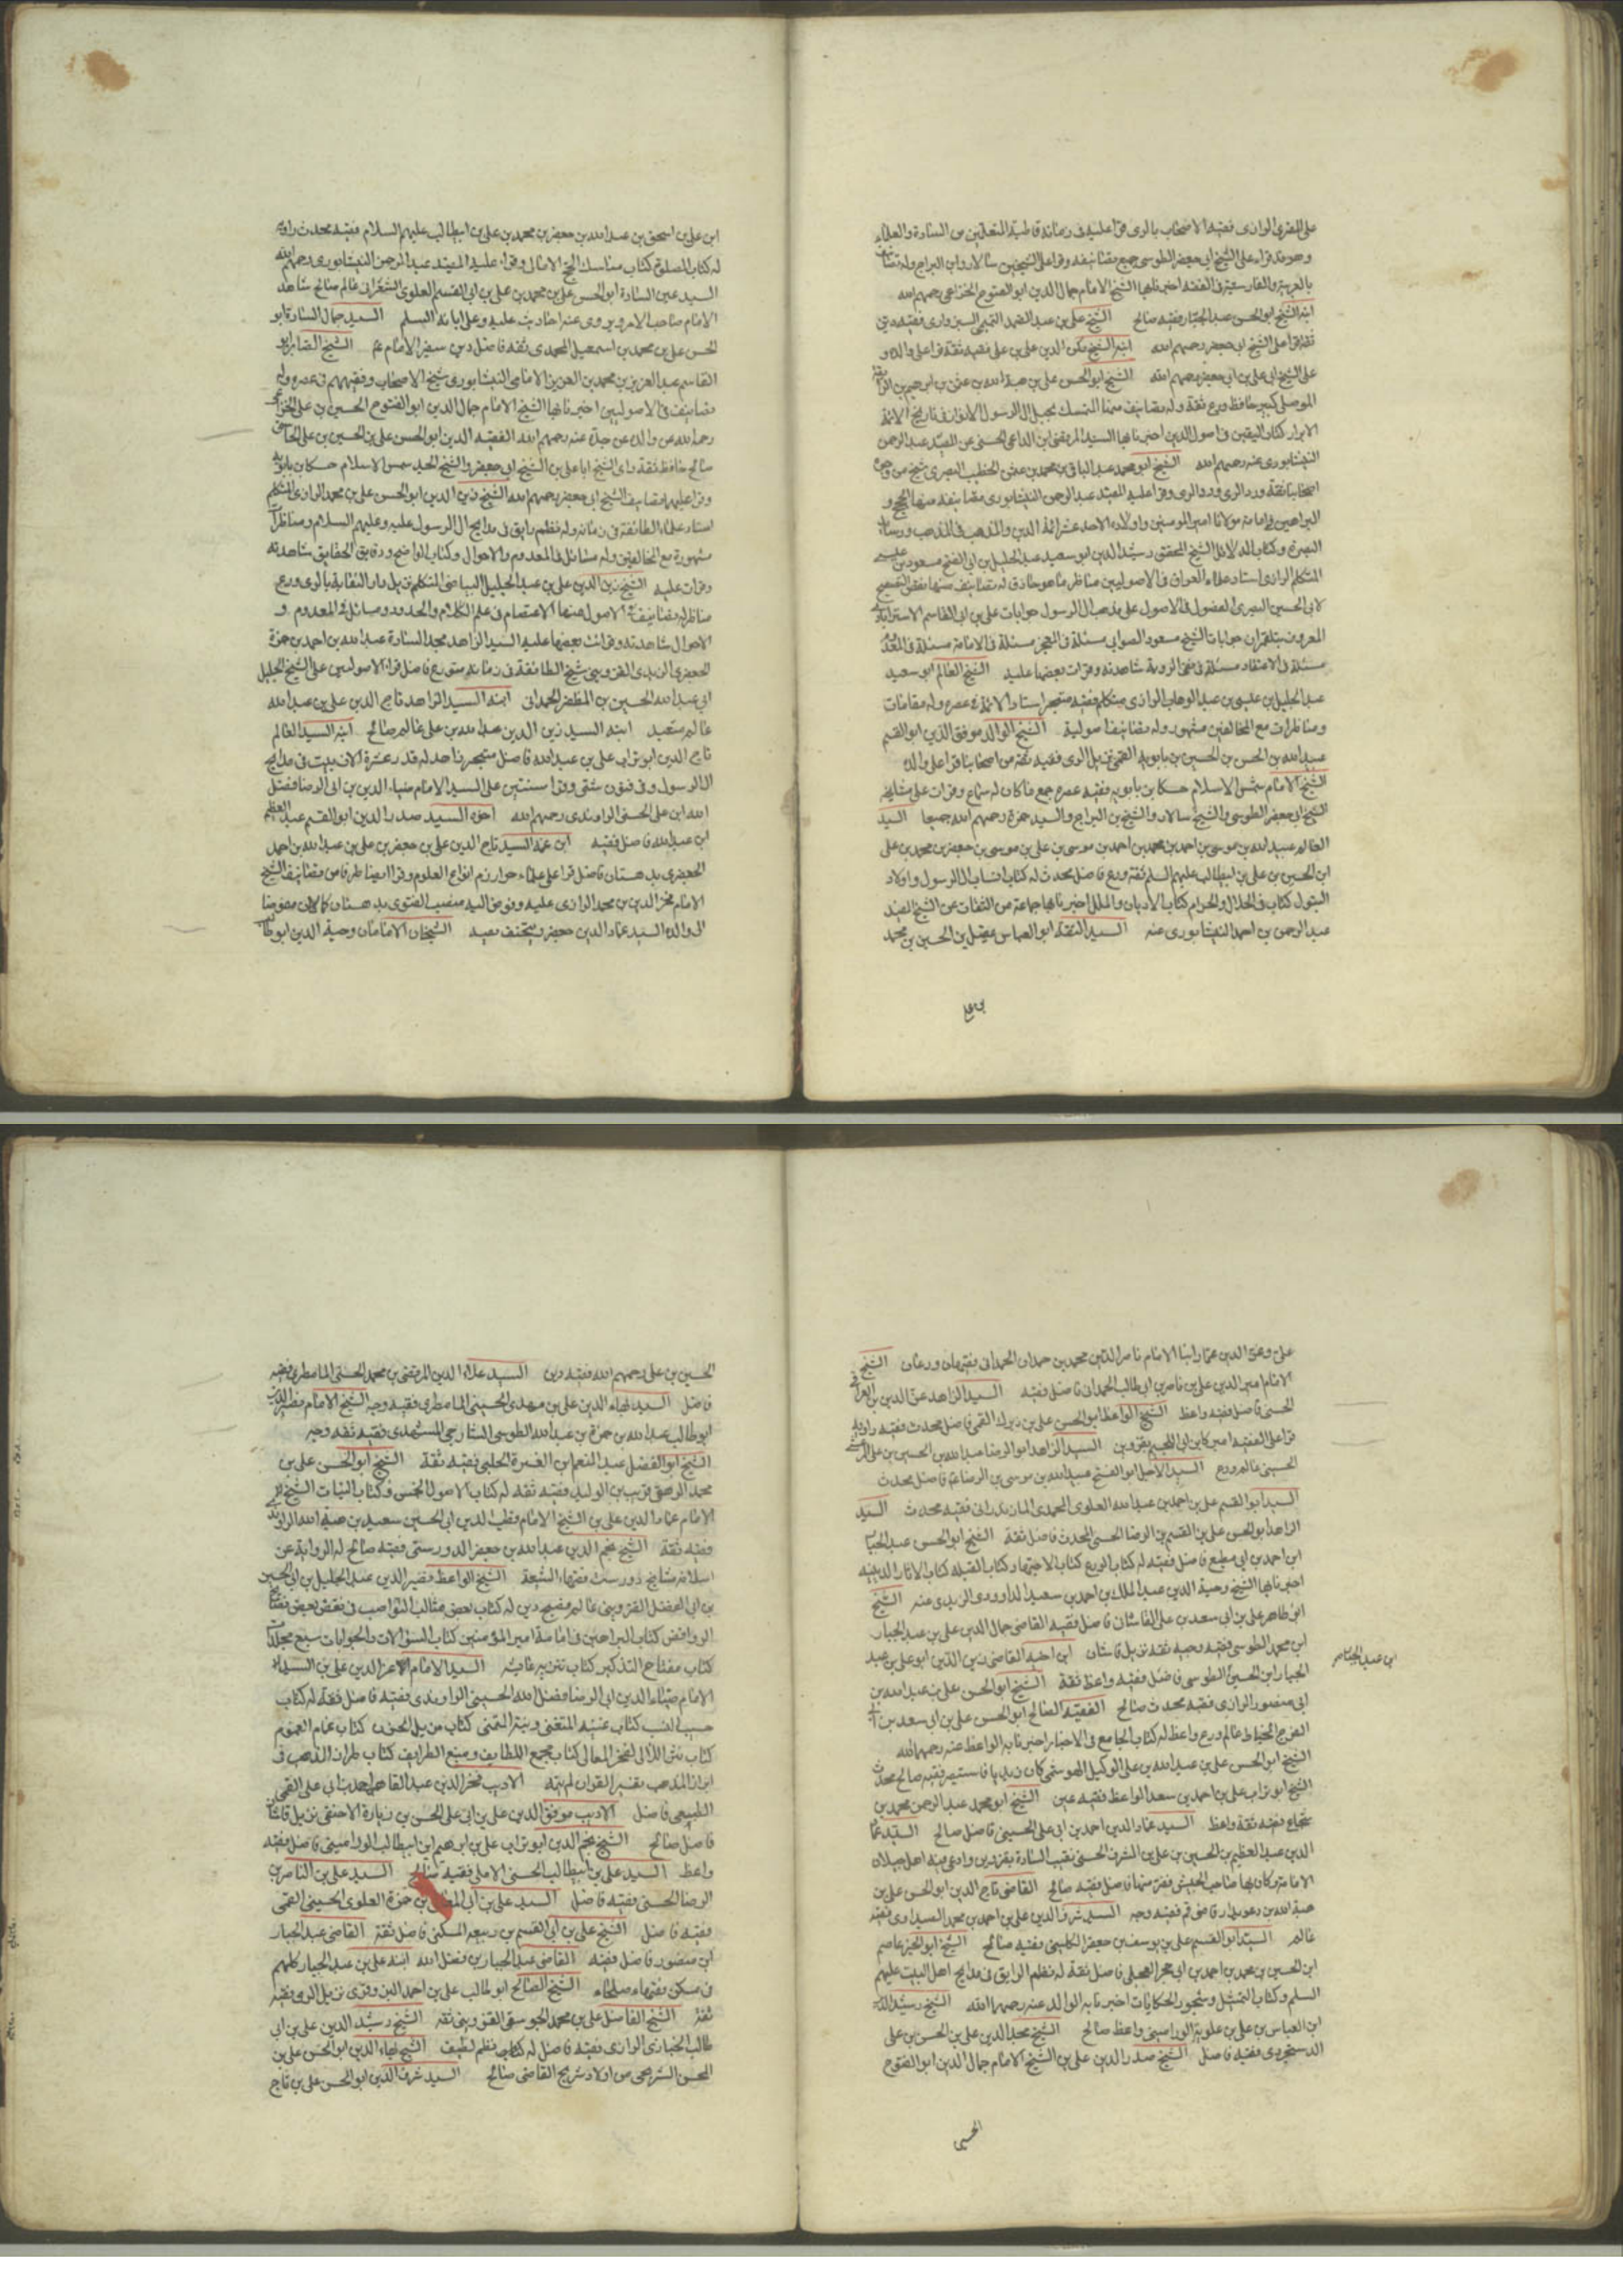 على المقرى الرازى فقيه الاصحاب بالرى قرا عليه فى زمانه قاطبة المتعلمين من السادة والعلماء
وهو قد قراء على الشيخ ابى جعفر الطوسى جميع تصانيفه وقرا على الشيخين سالار وابن البراج وله تصانيف
بالعربية والفارسية فى الفقه اخبرنا بها الشيخ الامام جمال الدين ابو الفتوح الخزاعى رحمهم الله
ابنه الشيخ ابو الحسن على بن عبد الجبار فقيه صالح الشيخ على بن عبد الصمد التميمى السبزوارى فقيه دين
ثقة قرا على الشيخ ابى جعفر رحمهم الله ابنه الشيخ ركن الدين على بن على فقيه ثقة قرا على والده و
على الشيخ ابى على بن ابى جعفر رحمهم الله الشيخ ابو الحسن على بن هبة الله بن عثمن بن ابرهيم بن الرائقة
الموصلى كبير حافظ ورع ثقة وله تصانيف منها المتمسك بحبل آل الرسول الانوار فى تاريخ الائمة
الابرار كتاب اليقين فى اصول الدين اخبرنا بها السيد المرتضى ابن الداعى الحسنى عن المفيد عبد الرحمن
النيشابورى عنه رحمهم الله الشيخ ابو محمد عبد الباقى بن محمد بن عثمن الخطيب البصرى شيخ من وجوه
اصحابنا ثقة ورد الرى وقرا عليه المفيد عبد الرحمن النيشابورى تصانيفه منها الحجج و
البراهين فى امامة مولانا امير المومنين واولاده الاحد عشر ائمة الدين والمذهب فى المذهب ورسالة
البصرة وكتاب الدلائل الشيخ المحقق رشيد الدين ابو سعيد عبد الجليل بن ابى الفتح مسعود بن عيسى
المتكلم الرازى استاد علماء العراق فى الاصوليين مناظر ماهر حاذق له تصانيف منها نقض التصفح
لابى الحسين البصرى الفصول فى الاصول على مذهب ال الرسول جوابات على بن ابى القاسم الاسترابادى
المعروف ببلقمران جوابات الشيخ مسعود الصوابى مسئلة فى المعجز مسئلة فى الامامة مسئلة فى المعدوم
مسئلة فى الاعتقاد مسئلة فى نفى الروية شاهدته وقرات بعضها عليه الشيخ العالم ابو سعيد
عبد الجليل بن عيسى بن عبد الوهاب الرازى متكلم فقيه متبحر استاد الائمة فى عصره وله مقامات
ومناظرات مع المخالفين مشهورة وله تصانيف اصولية الشيخ الوالد موفق الدين ابو القسم
عبيد الله بن الحسن بن الحسين بن بابويه القمى نزيل الرى فقيه ثقة من اصحابنا قرا على والده
الشيخ الامام شمس الاسلام حسكا بن بابويه فقيه عصره جميع ما كان له سماع وقرات على مشايخه
الشيخ ابى جعفر الطوسى والشيخ سالار والشيخ بن البراج والسيد حمزة رحمهم الله جميعا السيد
العالم عبيد الله بن موسى بن احمد بن محمد بن احمد بن موسى بن على بن موسى بن جعفر بن محمد بن على
ابن الحسين بن على بن ابيطالب عليهم السلم ثقة ورع فاضل محدث له كتاب انساب ال الرسول واولاد
البتول كتاب فى الحلال والحرام كتاب الاديان والملل اخبرنا بها جماعة من الثقات عن الشيخ المفيد
عبد الرحمن بن احمد النيشابورى عنه السيد الثقة ابو العباس عقيل بن الحسين بن محمد
بن على
ابن على بن اسحق بن عبد الله بن جعفر بن محمد بن على بن ابيطالب عليهم السلام فقيه محدث راوية
له كتاب الصلوة كتاب مناسك الحج الامالى وقراء عليه المفيد عبد الرحمن النيشابورى رحمهم الله
السيد عين السادة ابو الحسن على بن محمد بن على بن ابى القسم العلوى الشعرانى عالم صالح شاهد
الامام صاحب الامر ويروى عنه احاديث عليه وعلى ابائه السلم السيد جمال السادة ابو
الحسن على بن محمد بن اسمعيل المحمدى ثقة فاضل دين سفير الامام عم الشيخ الصائر ابو
القاسم عبد العزيز بن محمد بن العزيز الامامى النيشابورى شيخ الاصحاب وفقيههم فى عصره وله
تصانيف فى الاصوليين اخبرنا بها الشيخ الامام جمال الدين ابو الفتوح الحسين بن على الخزاعى
رحمه الله عن والده عن جده عنه رحمهم الله الفقيه الدين ابو الحسن على بن الحسين بن على الجاسبى
صالح حافظ ثقة راى الشيخ ابا على بن الشيخ ابى جعفر والشيخ الجد شمس الاسلام حسكا بن بابويه
وقرا عليهما تصانيف الشيخ ابى جعفر رحمهم الله الشيخ زين الدين ابو الحسن على بن محمد الرازى المتكلم
استاد علماء الطائفة فى زمانه وله نظم رايق فى مدايح ال الرسول عليه وعليهم السلام ومناظرات
مشهورة مع المخالفين وله مسائل فى المعدوم والاحوال وكتاب الواضح ودقايق الحقايق شاهدته
وقرات عليه الشيخ زين الدين على بن عبد الجليل البياضى المتكلم نزيل دار النقابة بالرى ورع
مناظر له تصانيف فى الاصول منها الاعتصام فى علم الكلام والحدود ومسائل فى المعدوم و
الاحوال شاهدته وقرات بعضها عليه السيد الزاهد مجد السادة عبد الله بن احمد بن حمزة
الجعفرى الزينبى القزوينى شيخ الطائفة فى زمانه متورع فاضل قراء الاصوليين على الشيخ الجليل
ابى عبد الله الحسين بن المظفر الحمدانى ابنه السيد الزاهد تاج الدين على بن عبد الله
عالم متعبد ابنه السيد زين الدين عبد الله بن على عالم صالح ابنه السيد العالم
تاج الدين ابو تراب على بن عبد الله فاضل متبحر زاهد له قدر عشرة الاف بيت فى مدايح
ال الرسول وفى فنون شتى وقرا سنتين على السيد الامام ضياء الدين بن ابى الرضا فضل
الله ابن على الحسنى الراوندى رحمهم الله اخوه السيد صدر الدين ابو القسم عبد العظيم
ابن عبد الله فاضل فقيه ابن عمه السيد تاج الدين على بن جعفر بن على بن عبد الله بن احمد
الجعفرى بدهستان فاضل قرا على علماء خوارزم انواع العلوم وقرا ايضا طرفا من تصانيف الشيخ
الامام فخر الدين بن محمد الرازى عليه وفوض اليه منصب الفتوى بدهستان كما كان مفوضا
الى والده السيد عماد الدين جعفر ويتحنف بعيد الشيخان الامامان وجية الدين ابو طالب
على وعز الدين عمار ابنا الامام ناصر الدين محمد بن حمدان الحمدانى فقيهان ورعان الشيخ
الامام ... الدين على بن ناصر بن ابى طالب الحمدانى فاضل فقيه السيد الزاهد عز الدين بن العراقى
الحسنى فاضل فقيه واعظ الشيخ الواعظ ابو الحسن على بن زيرك القمى فاضل محدث فقيه راوية
قرا على الفقيه اميركا بن ابى اللجيم بقزوين السيد الزاهد ابو الرضا عبد الله بن الحسين بن على المرعشى
الحسينى عالم ورع السيد الاجل ابو الفتح عبيد الله بن موسى بن الرضا عم فاضل محدث
السيد ابو القسم على بن احمد بن عبد الله العلوى المحمدى المازندرانى فقيه محدث السيد
الزاهد ابو الحسن على بن القسم بن الرضا الحسنى المحدث فاضل ثقة الشيخ ابو الحسن عبد الجبار
ابن احمد بن ابى مطيع فاضل فقيه له كتاب الورع كتاب الاجتهاد كتاب القبلة كتاب الاثار الدينية
اخبرنا بها الشيخ وجية الدين عبد الملك بن احمد بن سعيد الداوودى الزيدى عنه الشيخ
ابو طاهر على بن ابى سعد بن على القاشان فاضل فقيه القاضى جمال الدين على بن عبد الجبار
ابن محمد الطوسى فقيه وجيه ثقة نزيل قاشان ابن اخيه القاضى زين الدين ابو على بن عبد
ابن عبد الجبار صح
الجبار ابن الحسين الطوسى فاضل فقيه واعظ ثقة الشيخ ابو الحسن على بن عبد الله بن
ابى منصور الرازى فقيه محدث صالح الفقيه الصالح ابو الحسن على بن ابى سعد بن ابى
الفرج الخياط عالم ورع واعظ له كتاب الجامع فى الاخبار اخبرنا به الواعظ عنه رحمهما الله
الشيخ ابو الحسن على بن عبد الله بن على الوكيل الهوسمى كان زيديا فاستبصر فقيه صالح محدث
الشيخ ابو تراب على بن احمد بن سعد الواعظ فقيه عين الشيخ ابو محمد عبد الرحمن محمد بن
شجاع فقيه ثقة واعظ السيد عماد الدين احمد بن ابى على الحسينى فاضل صالح السيد عماد
الدين عبد العظيم بن الحسين بن على بن الشرف الحسنى نقيب السادة بقزوين وادعى فيه اهل جيلان
الامامة وكان بها صاحب الجيش ففر منها فاضل فقيه صالح القاضى تاج الدين ابو الحسن على بن
هبة الله بن دعويدار قاضى قم فقيه وجه السيد شرف الدين على بن احمد بن محمد الصيداوى فقيه
عالم السيد ابو القسم على بن يوسف بن جعفر الكلينى فقيه صالح الشيخ ابو الخير عاصم
ابن الحسين بن محمد بن احمد بن ابى حجر العجلى فاضل ثقة له نظم الرايق فى مدايح اهل البيت عليهم
السلم وكتاب التمثيل وشجون الحكايات اخبرنا به الوالد عنه رحمهما الله الشيخ رشيد الدين
ابن العباس بن على بن علوية الورامينى واعظ صالح الشيخ مجد الدين على بن الحسن بن على
الدستجردى فقيه فاضل الشيخ صدر الدين على بن الشيخ الامام جمال الدين ابو الفتوح
الحسين
الحسين بن على رحمهم الله فقيه دين السيد علاء الدين المرتضى بن محمد الحسنى المامطيرى فقيه
فاضل السيد بهاء الدين على بن مهدى الحسينى المامطيرى فقيه وجه الشيخ الامام نصير الدين
ابو طالب عبد الله بن حمزة بن عبد الله الطوسى الشارحى المشهدى فقيه ثقة وجه
الشيخ ابو الفضل عبد المنعم ابن الغيرة الحلبى فقيه ثقة الشيخ ابو الحسن على بن
محمد الرهقى قريب بن الوليد فقيه ثقة له كتاب الاصول الخمس وكتاب النيات الشيخ
الامام عماد الدين على بن الشيخ الامام قطب الدين ابى الحسين سعيد بن هبة الله الراوندى
فقيه ثقة الشيخ نجم الدين عبد الله بن جعفر الدوريستى فقيه صالح له الرواية عن
اسلافه مشايخ دوريست فقهاء الشيعة الشيخ الواعظ نصير الدين عبد الجليل بن ابى الحسين
بن ابى الفضل القزوينى عالم فصيح دين له كتاب بعض مثالب النواصب فى نقض بعض فضائح
الروافض كتاب البراهين فى امامة امير المؤمنين كتاب السؤالات والجوابات سبع مجلدات
كتاب مفتاح التذكير كتاب تنزيه عايشة السيد الامام الاعز الدين على بن السيد
الامام ضياء الدين ابى الرضا فضل الله الحسينى الراوندى فقيه فاضل ثقة له كتاب
حسيب النسيب كتاب غنية المتغنى ومنية المتمنى كتاب مزيل الحزن كتاب غمام الغموم
كتاب نثر اللالى لفخر المعالى كتاب مجمع اللطايف ومنبع الظرايف كتاب طراز المذهب فى
ابراز المذهب تفسير القران لم يتمه الاديب فخر الدين عبد القاهر احمد بن ابى على القمى
الطبيعى فاضل الاديب موفق الدين على بن ابى على الحسن بن زيارة الاحنفى نزيل قاشان
فاضل صالح الشيخ نجم الدين ابو تراب على بن ابرهيم ابن ابيطالب الورامينى فاضل فقيه
واعظ السيد على بن ابيطالب الحسنى الاملى فقيه صالح السيد على بن الناصر بن
الرضا الحسنى فقيه فاضل السيد على بن ابى المظفر بن حمزة العلوى الحسينى القمى
فقيه فاضل الشيخ على بن ابى القسم بن ربيعه المسكنى فاضل ثقة القاضى عبد الجبار
ابن منصور فاضل فقيه القاضى عبد الجبار بن فضل الله ابنه على بن عبد الجبار كلهم
فى مسكن وفقهاء صلحاء الشيخ الصالح ابو طالب على بن احمد البزوفرى نزيل الرى فقيه
ثقة الشيخ الفاضل على بن محمد الجوسقى القزوينى ثقة الشيخ رشيد الدين على بن ابى
طالب الخبازى الرازى فقيه فاضل له كتاب نظم لطيف الشيخ بهاء الدين ابو الحسن على بن
المحسن الشريحى من اولاد شريح القاضى صالح السيد شرف الدين ابو الحسن على بن تاج